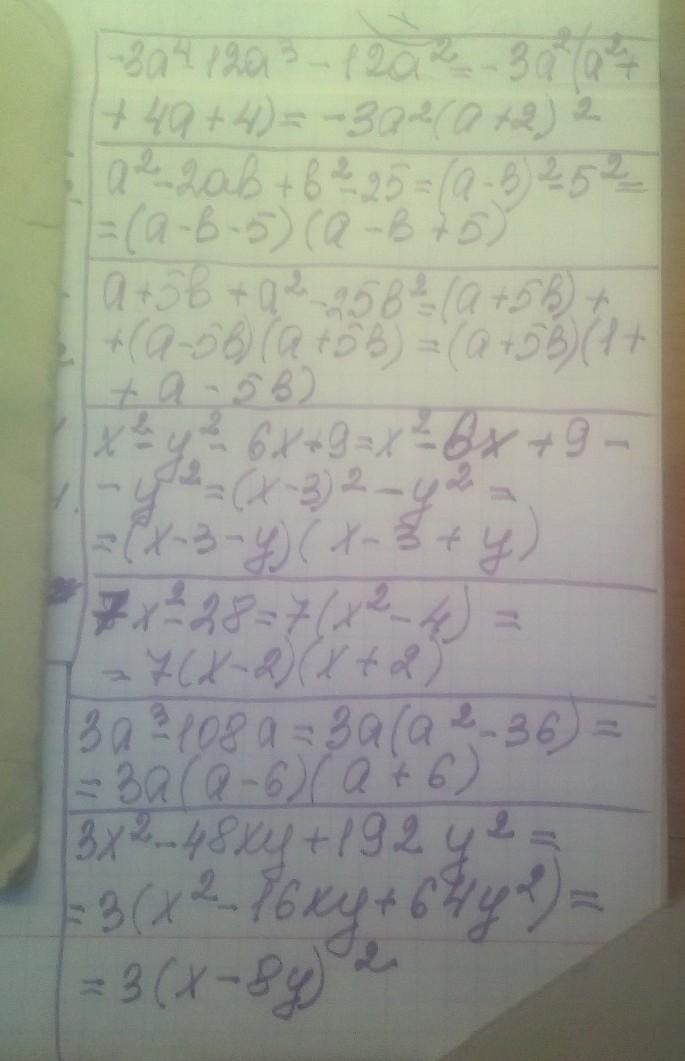 -3a⁴-12a³-12a²=-3a²(a²+
+4a+4)=-3a²(a+2)²
a²-2ab+b²-25=(a-b)²-5²=
=(a-b-5)(a-b+5)
a+5b+a²-25b²=(a+5b)+
+(a-5b)(a+5b)=(a+5b)(1+
+a-5b)
x²-y²-6x+9=x²-6x+9-
-y²=(x-3)²-y²=
=(x-3-y)(x-3+y)
7x²-28=7(x²-4)=
=7(x-2)(x+2)
3a³-108a=3a(a²-36)=
=3a(a-6)(a+6)
3x²-48xy+192y²=
=3(x²-16xy+64y²)=
=3(x-8y)²